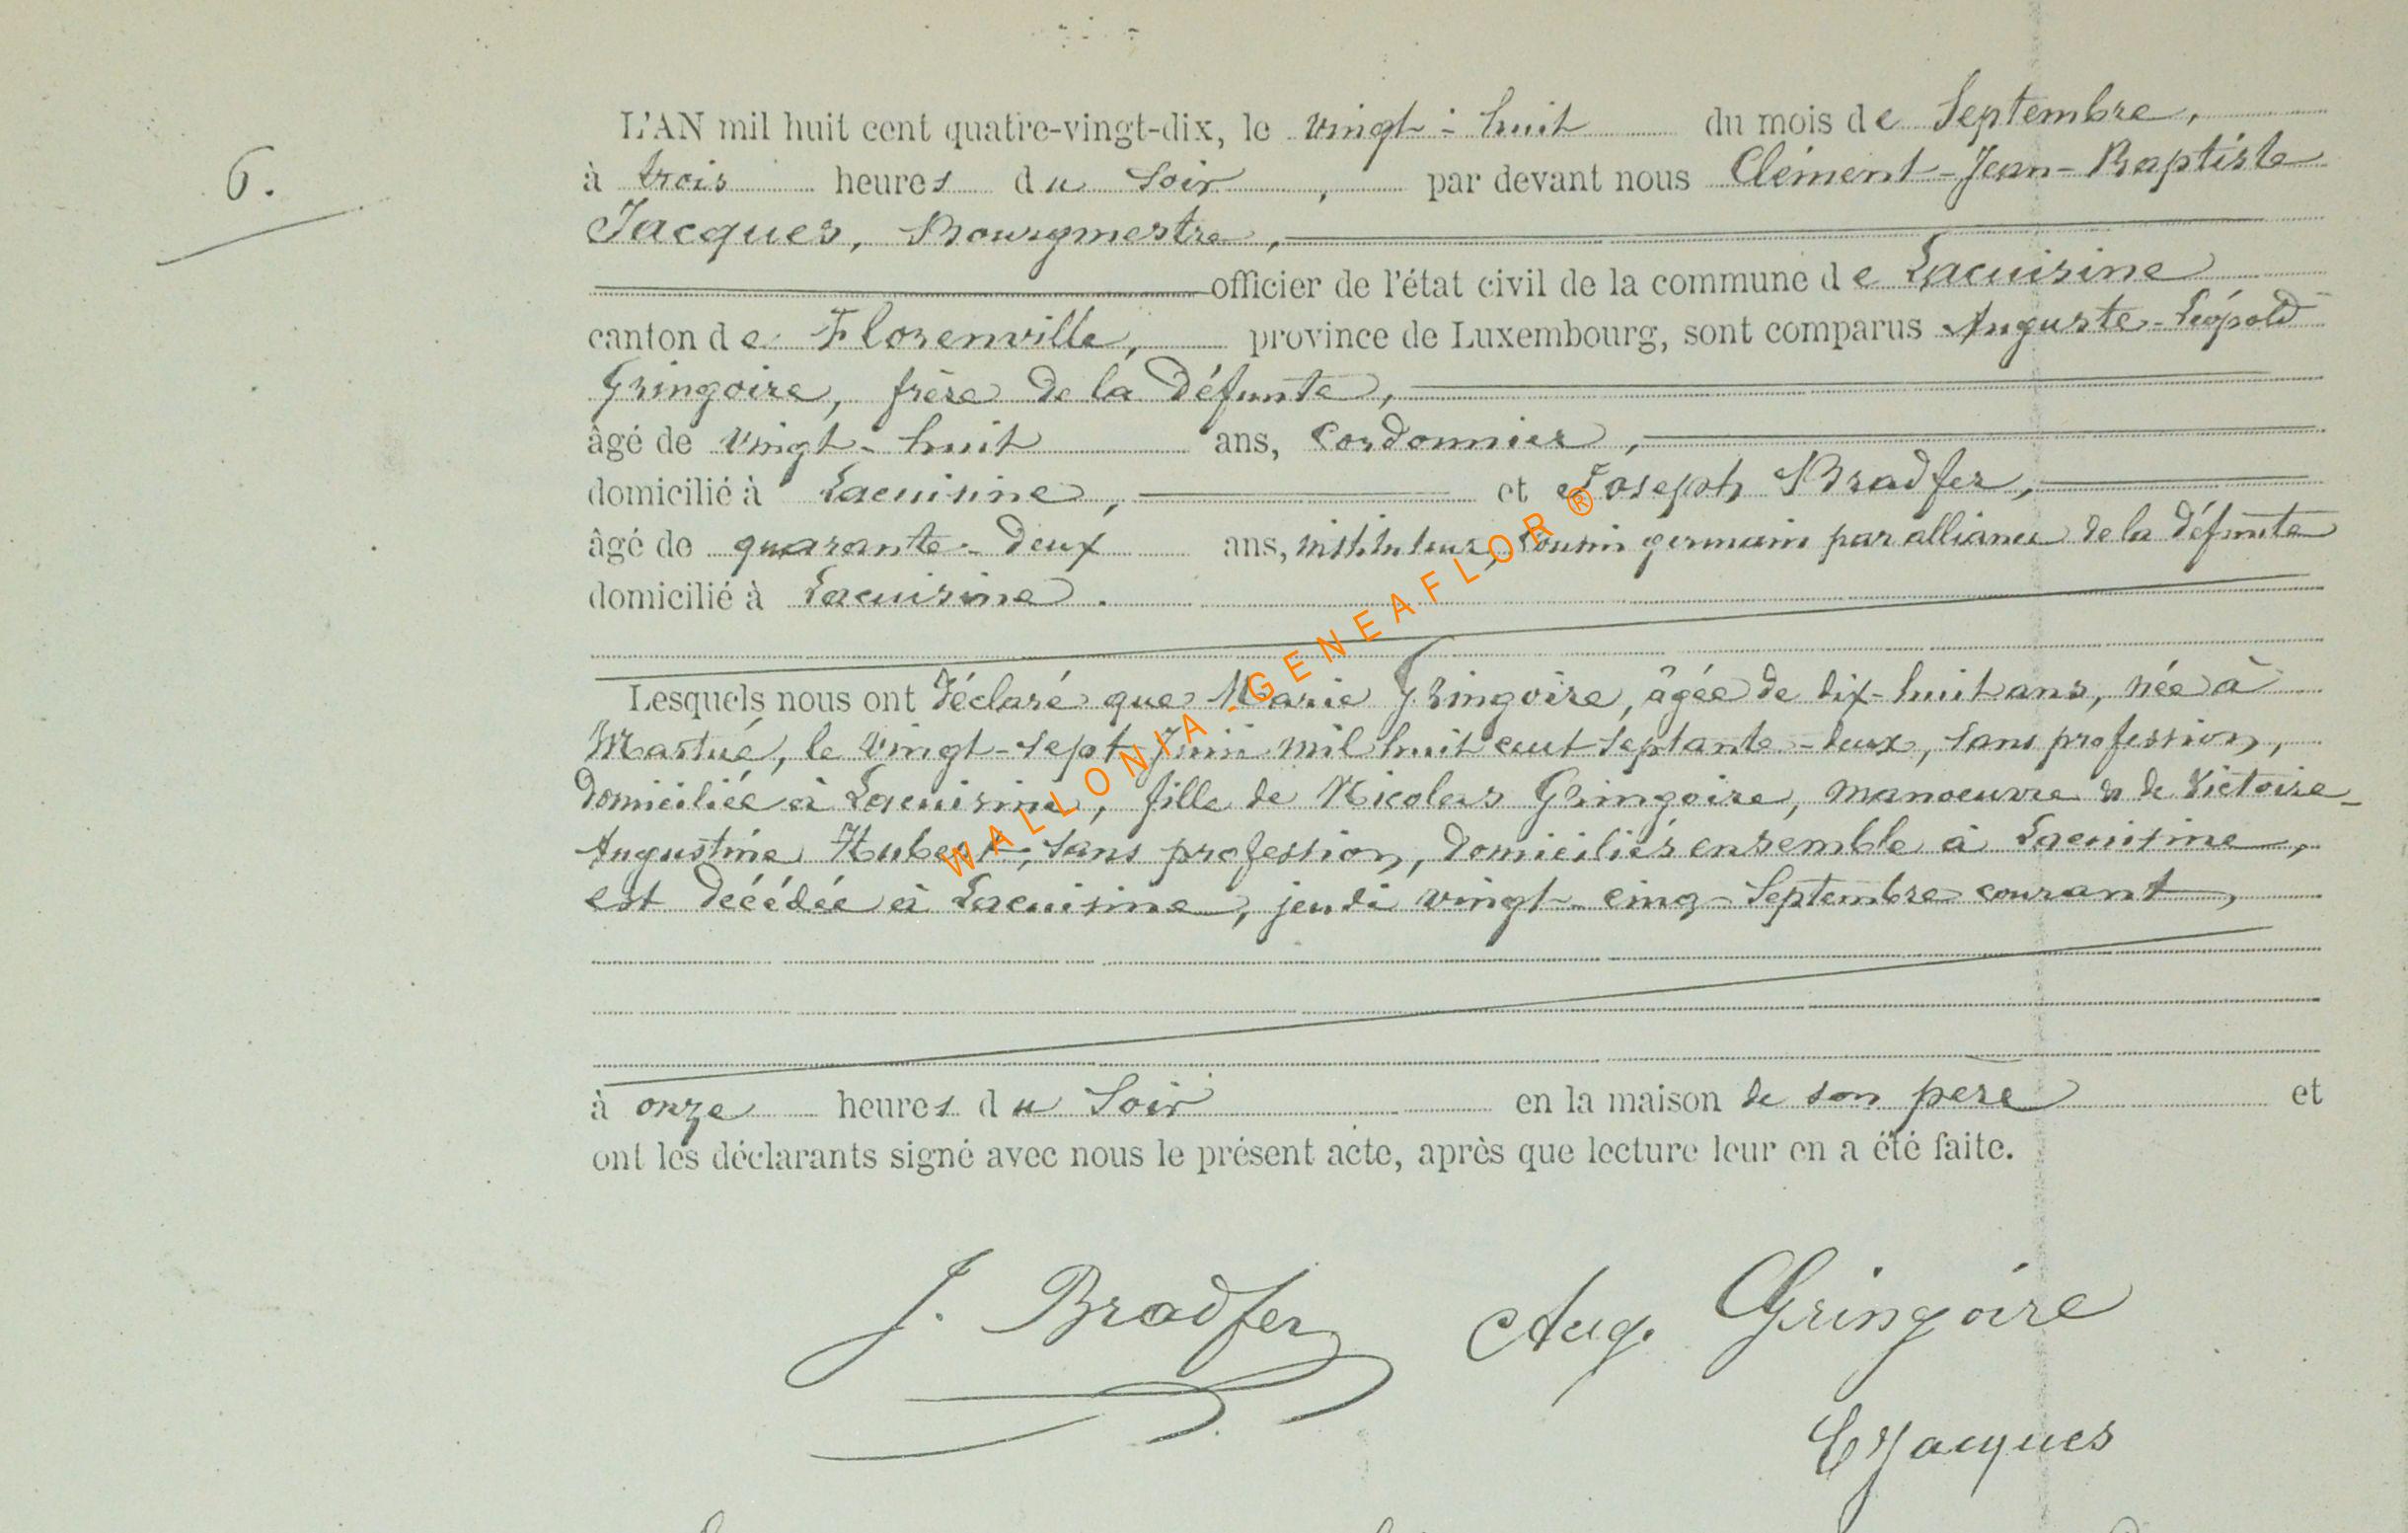 6.
L'AN mil huit cent quatre-vingt-dix, le vingt-huit du mois de Septembre,
à trois heures du Soir, par devant nous Clément-Jean-Baptiste
Jacques, Bourgmestre,
officier de l'état civil de la commune de Lacuisine
canton de Florenville, province de Luxembourg, sont comparus Auguste-Léopold
Gringoire, frère de la défunte,
âgé de vingt-huit ans, Cordonnier,
domicilié à Lacuisine, et Joseph Bradfer,
âgé de quarante-deux ans, instituteur, Cousin germain par alliance de la défunte
domicilié à Lacuisine.
Lesquels nous ont déclaré que Marie Gringoire, âgée de dix-huit ans, née à
Martué, le vingt-sept Juin mil huit cent septante-deux, sans profession,
domiciliée à Lacuisine, fille de Nicolas Gringoire, manoeuvre & de Victoire-
Augustine Hubert, sans profession, domiciliés ensemble à Lacuisine,
est décédée à Lacuisine, jeudi vingt-cinq Septembre courant,
à onze heures du Soir en la maison de son père et
ont les déclarants signé avec nous le présent acte, après que lecture leur en a été faite.
J. Bradfer Aug. Gringoire
CJacques
WALLONIA-GENEAFLOR®